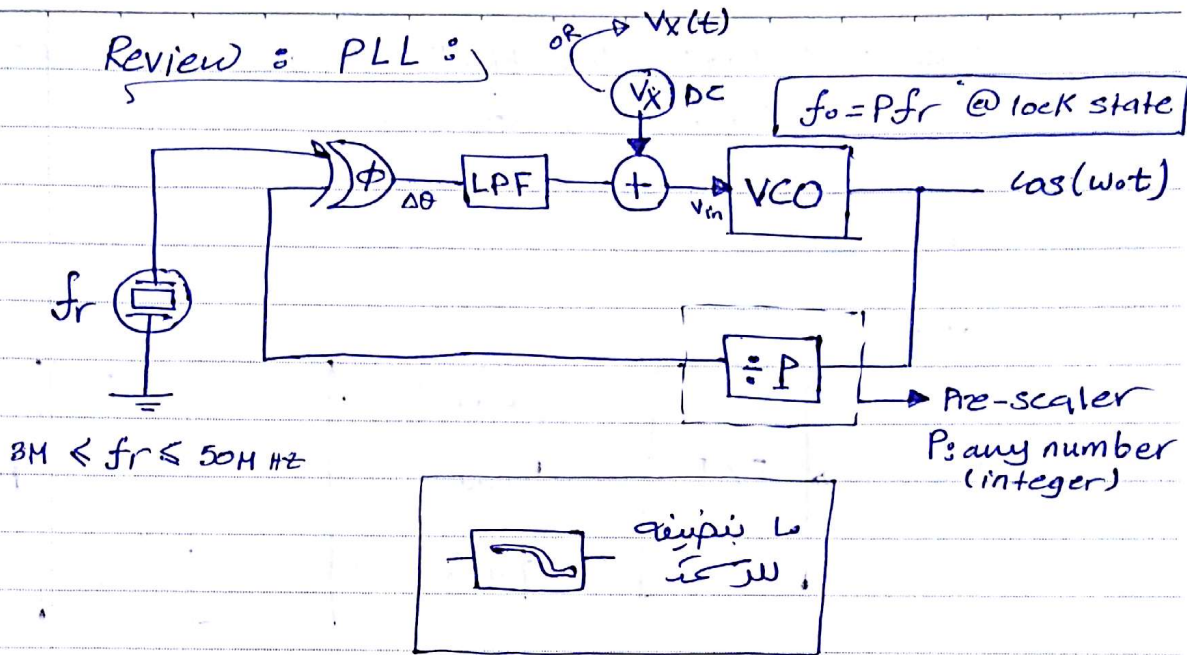 Review : PLL :
OR Vx(t)
Vx DC
fo = Pfr @ lock state
ϕ
Δθ
LPF
+
Vin
VCO
cos(wot)
fr
÷ P
Pre-scaler
P: any number
(integer)
3M ≤ fr ≤ 50M Hz
ما بنضيفه